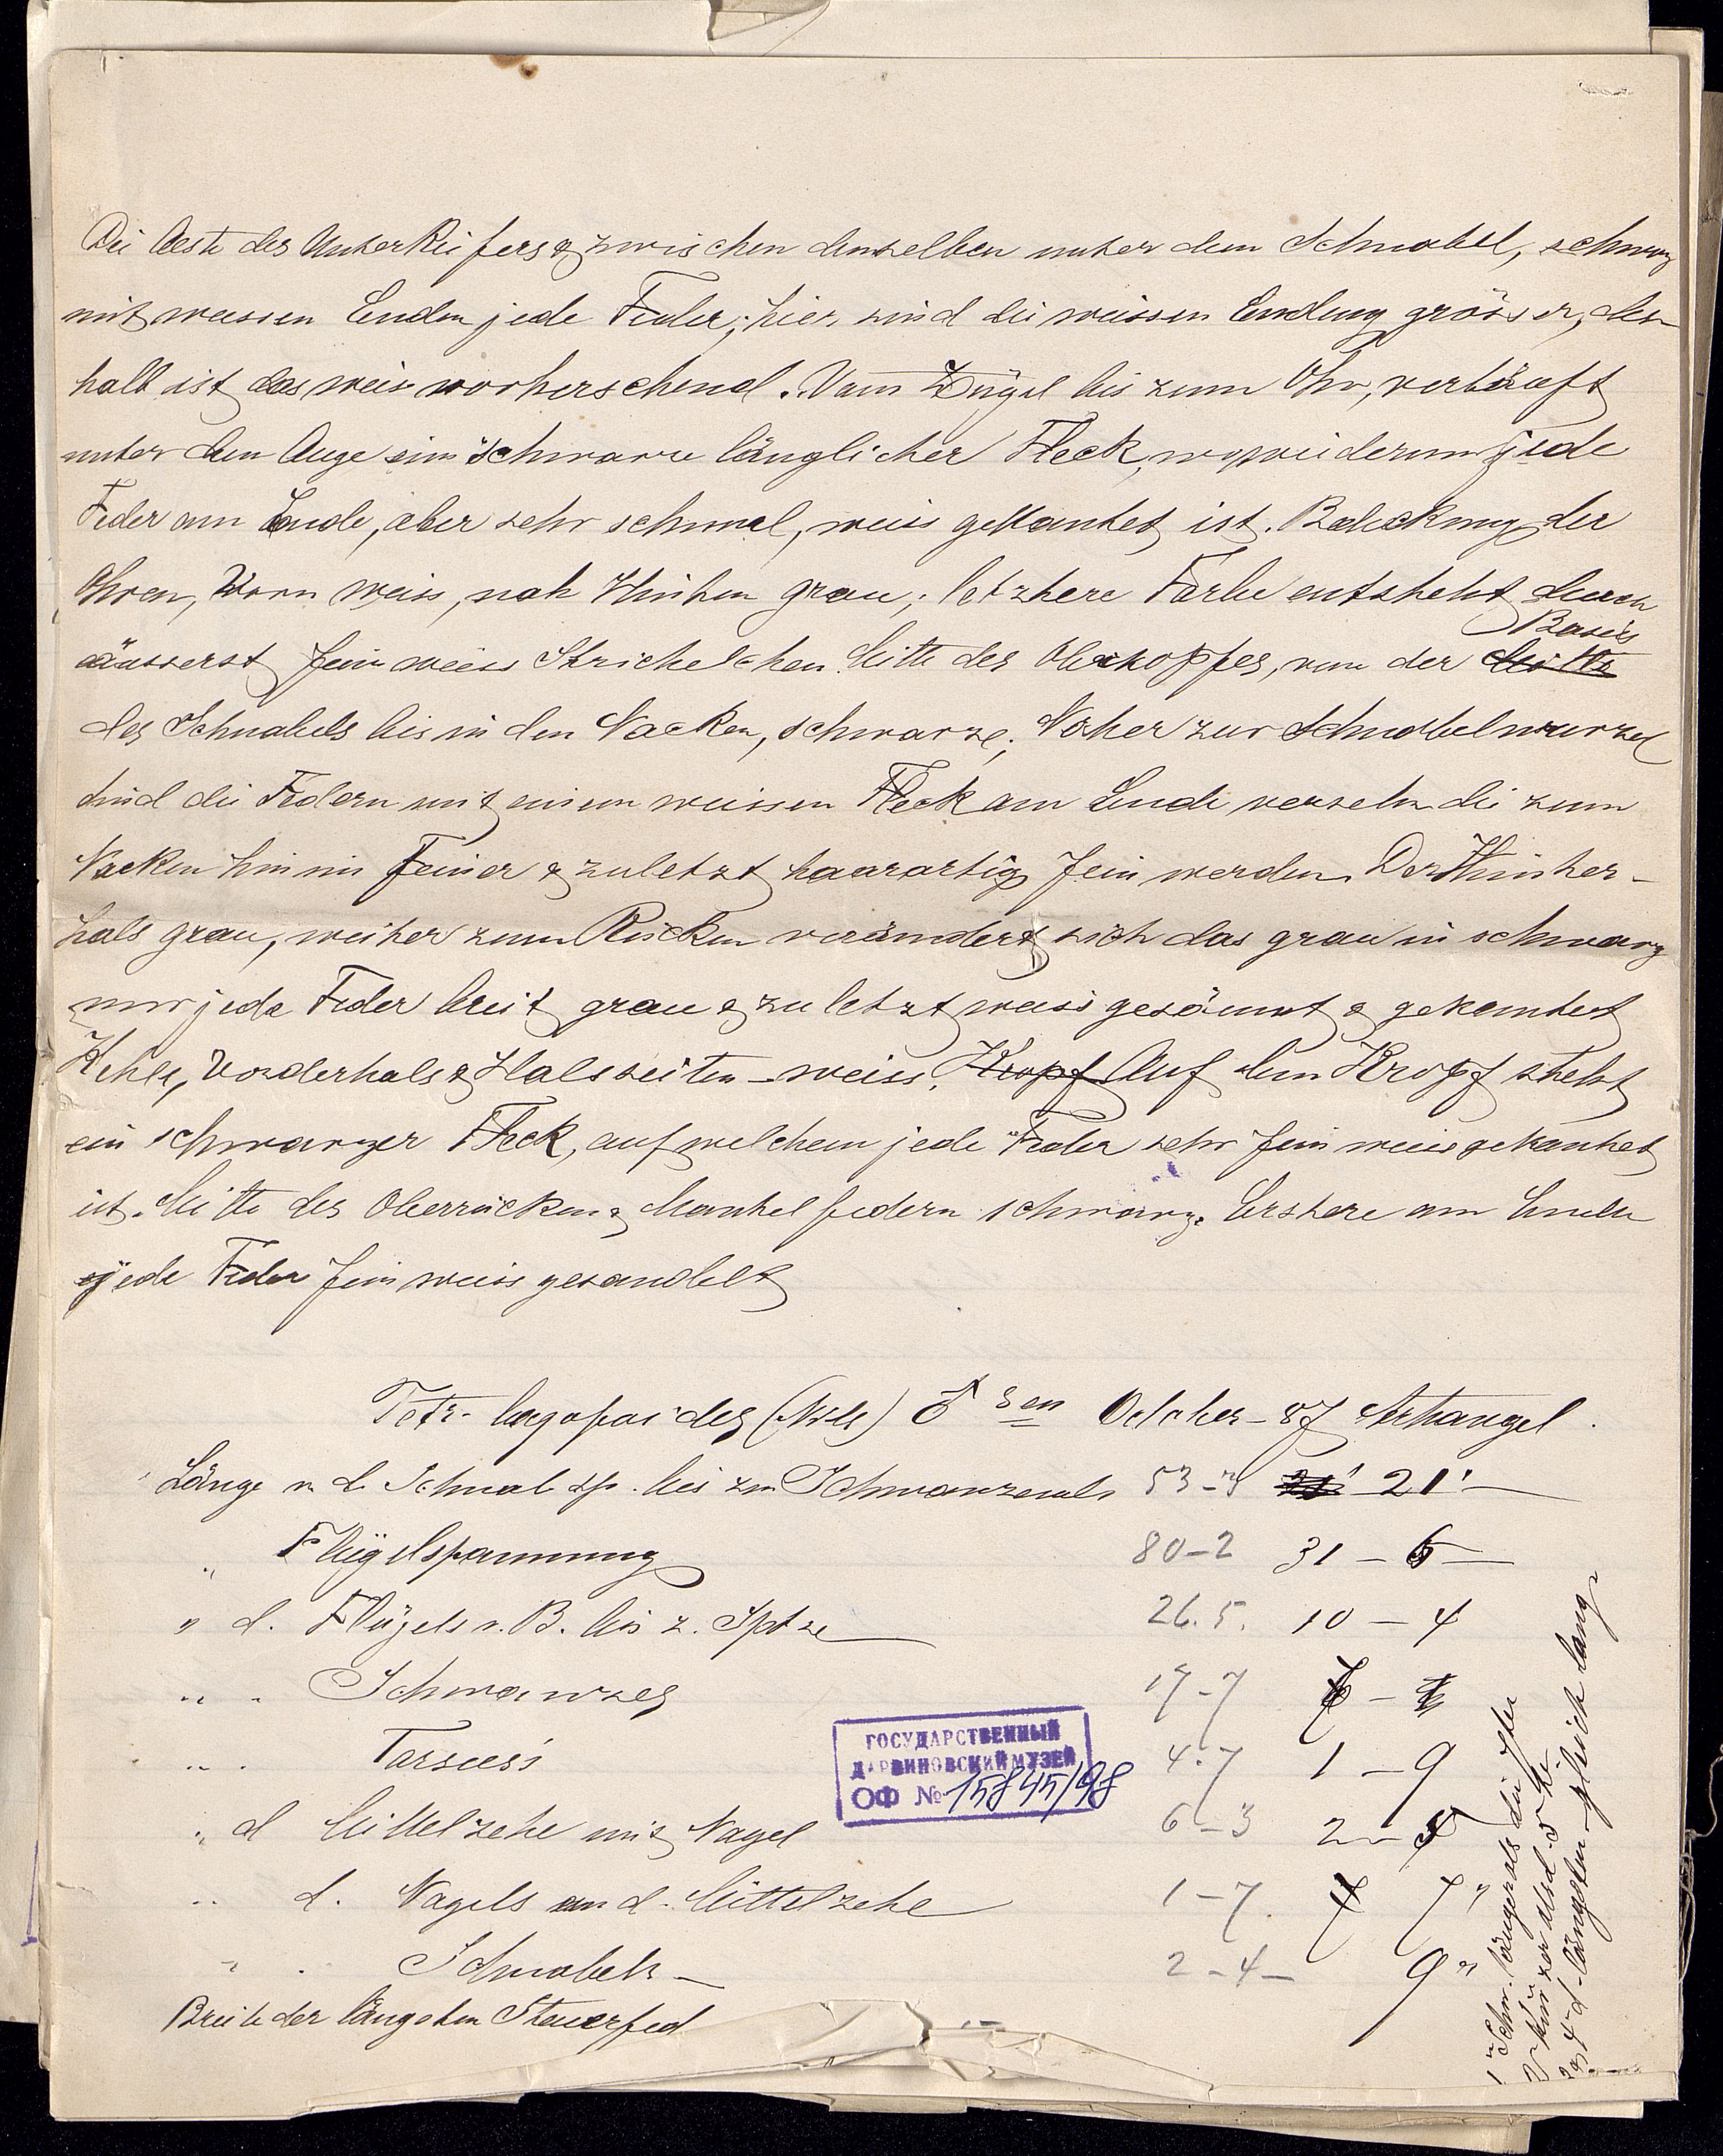 Die Aeste des Unterkiefers & zwischen denselben unter dem Schnabel, schwarz
mit weissen Enden jede Feder; hier sind die weissen Endung grösser, des-
halb ist das weis vorherschend. Vom Zügel bis zum Ohr, verläuft
unter dem Auge ein schwarze länglicher Fleck, wo wiederum jede
Feder am Ende, aber sehr schmal, weiss gekantet ist. Bedeckung der
Ohren, Vorn weiss, nah Hinten grau; letztere Farbe entsteht durch
äusserst fein weiss Strichelchen. Mitte des Oberkopfes, von der Basis
des Schnabels bis in den Nacken, schwarze; Näher zur Schnabelwurzel
sind die Federn mit einem weissen Fleck am Ende versehn die zum
Nacken hin im feiner & zuletzt haarartig fein werden. Der Hinter-
hals grau, weiter zum Rücken verändert sich das grau in schwarz
nur jede Feder breit grau & zuletzt weiss gesäumt & gekantet
Kehle, Vorderhals & Halsseiten - weiss. Kropf Auf dem Kropf steht
ein schwarzer Fleck, auf welchem jede Feder sehr fein weiss gekantet
ist. Mitte des Oberrücken & Mantelfedern schwarz. Erstere am Ende
jede Feder fein weiss gerandelt
Tetr. lagopoides (Nils) ♂ sen October - 87 Archangel.
Länge v. d. Schnab. sp. bis zu Schwanzende 53-3 21' —
" Flügelspannung 80-2 31 - 6 —
" d. Flügels v. B. bis z. Sptze — 26.5. 10 - 4
" " Schwanzes 17-7
" " Tarsus's 4-7 1 - 9
" d Mittelzehe mit Nagel 6-3 2 -
" d. Nagels an d. Mittelzehe 1-7. 7"
" " Schnabels — 2-4- 9"
Breite der längsten Steuerfed
1te Schw. länger als die
kürzer als d. 5te
3 & 4 d. längsten - gleich lang.
ГОСУДАРСТВЕННЫЙ
ДАРВИНОВСКИЙ МУЗЕЙ
ОФ № 15845/98